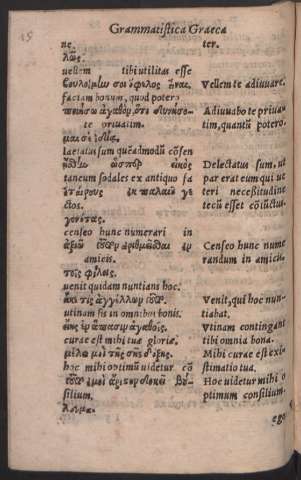 Grammatistica Graeca
ne. ter.
λῶς.
uellem tibi utilitas esse
βουλοίμην σοι ὄφελος Vellem te adiuuare.
factam bonum, quod potero
ποιήσω ἀγαθὸν, ὅτι Adiuuabo te priua
te priuatim. tim, quantũ potero.
laetatus sum quẽadmodũ cõsen
ὥσπερ εἰκὸς Delectatus sum, ut
taneum sodales ex antiquo fa par erat eum qui ue
ἑταίρους ἐκ παλαιοῦ γε teri necessitudine
ctos. tecũ esset cõiũctus.
γονότας.
censeo hunc numerari in
ἀξιῶ ἀριθμεῖσθαι ἐν Censeo hunc nume
amicis. randum in amicis.
τοῖς φίλοις.
uenit quidam nuntians hoc.
τις ἀγγέλλων Venit, qui hoc nun-
utinam sis in omnibus bonis. tiabat.
ἐν ἅπασιν ἀγαθοῖς. Vtinam contingant
curae est mihi tua gloriae. tibi omnia bona.
μέλει μοι τῆς σῆς δόξης. Mihi curae est exi-
hoc mihi optimũ uidetur cõ stimatio tua.
ἐμοὶ ἄριστον δοκεῖ βού- Hoc uidetur mihi o
silium. ptimum consilium.
λευμα.
ego